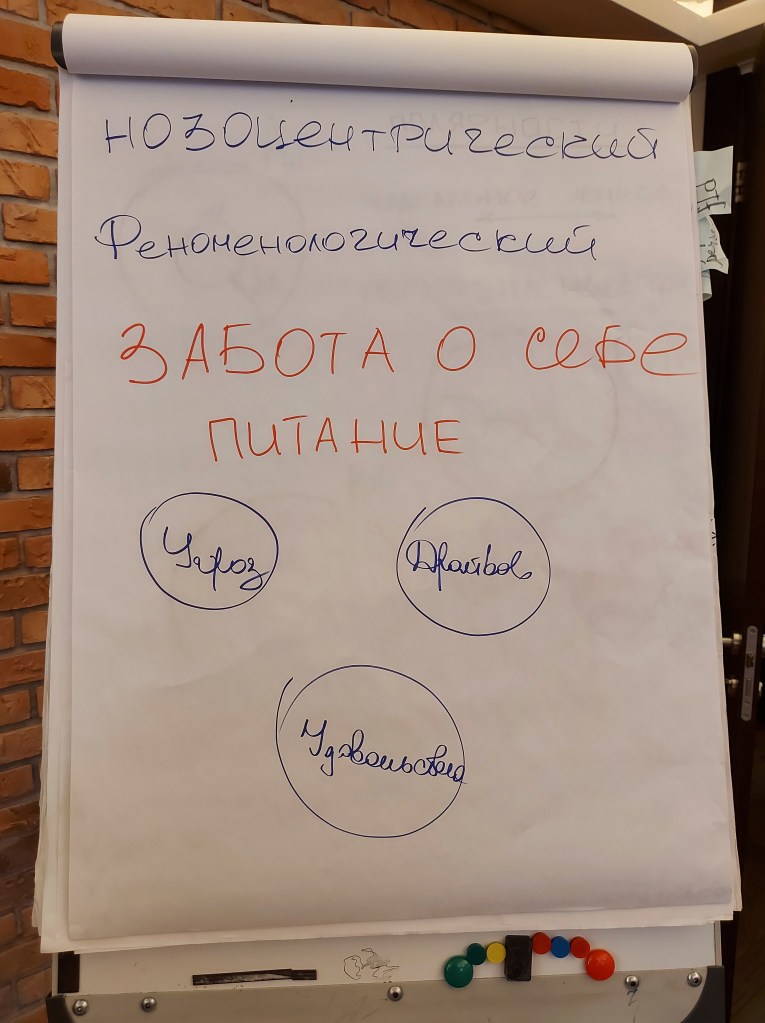 нозоцентрический
Феноменологический
ЗАБОТА О СЕБЕ
ПИТАНИЕ
Угроз
Драйвов
Удовольствия